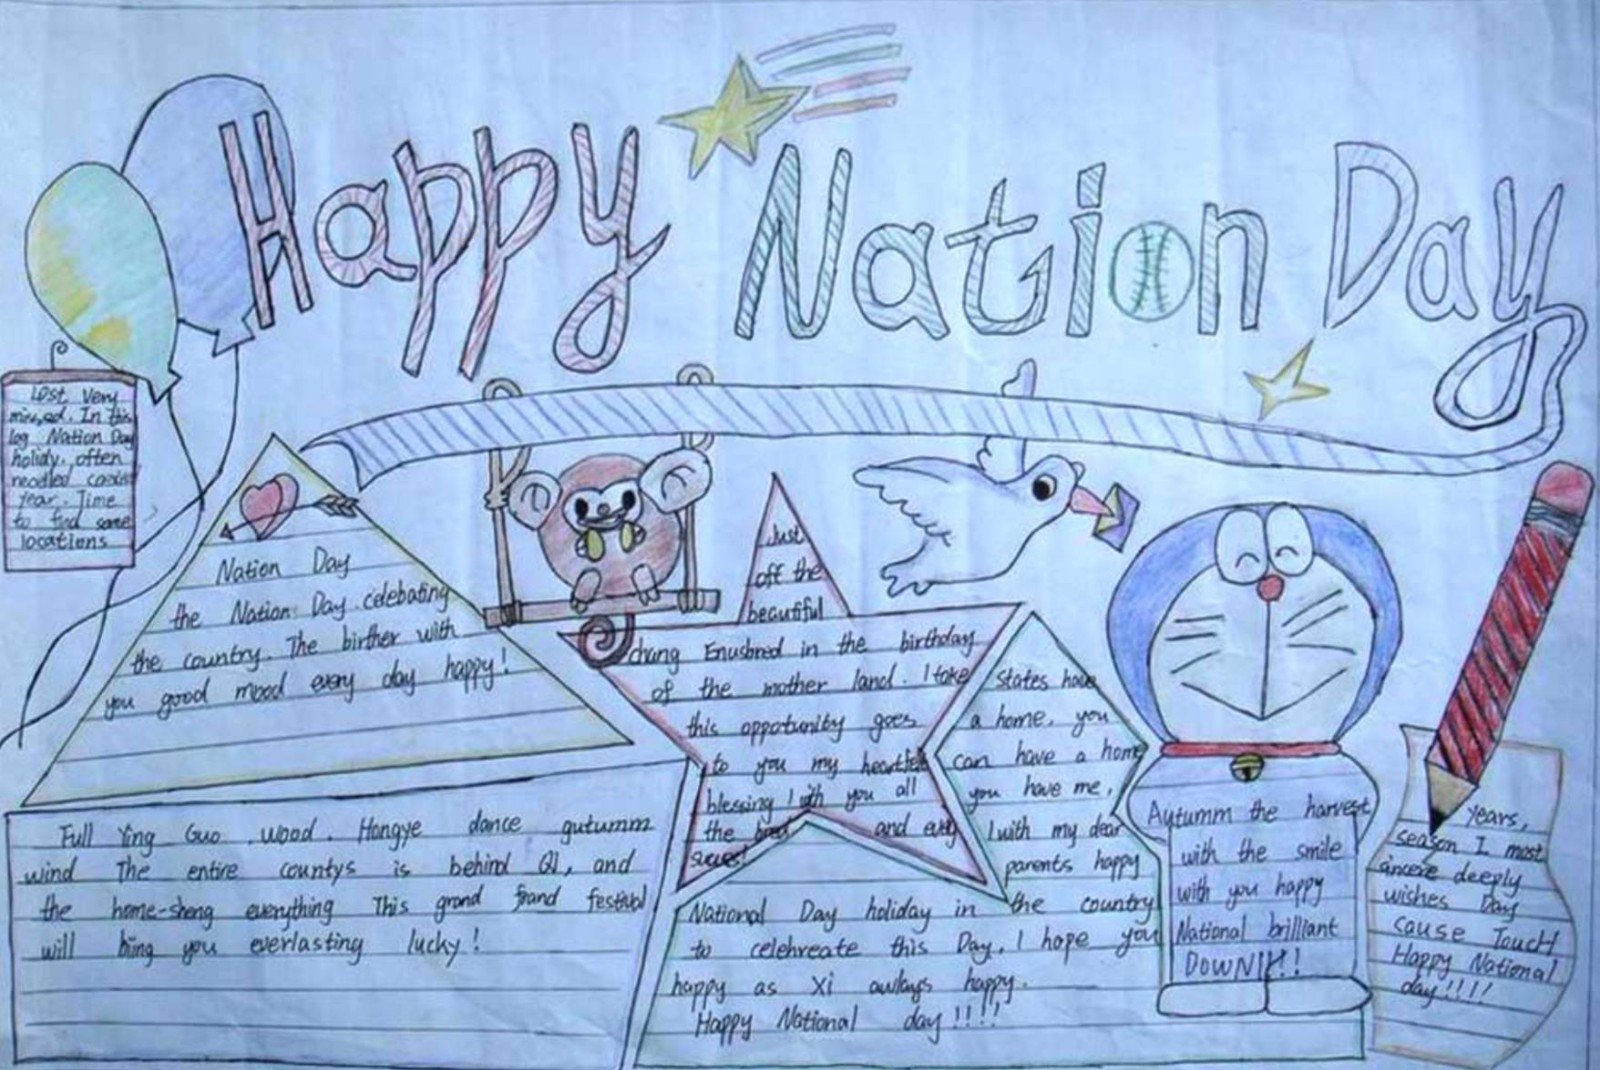 Happy Nation Day
Lost Very
missed. In this
log Nation Day
holidy. often
needled
year. Time
to find some
locations
Nation Day
the Nation Day celebating
the country. The birther with
you good mood every day happy!
Full Ying Guo wood. Hongye dance gutumm
wind The entire countys is behind QI, and
the home-sheng everything This grand frand festival
will bing you everlasting lucky!
Just
off the
beautiful
chang Enusbred in the birthday
of the mother land. I take
this opportunity goes
to you my
blessing! with you all
the and
States have
a home. you
can have a home
you have me.
I with my dear
parents happy
National Day holiday in the country
to celehreate this Day. I hope you
happy as Xi awlays happy.
Happy National day!!!!
Autumm the harvest
with the smile
with you happy
National brilliant
DOWN!!!!
years,
season I most
sincere deeply
wishes Day
cause Touch
Happy National
day!!!!